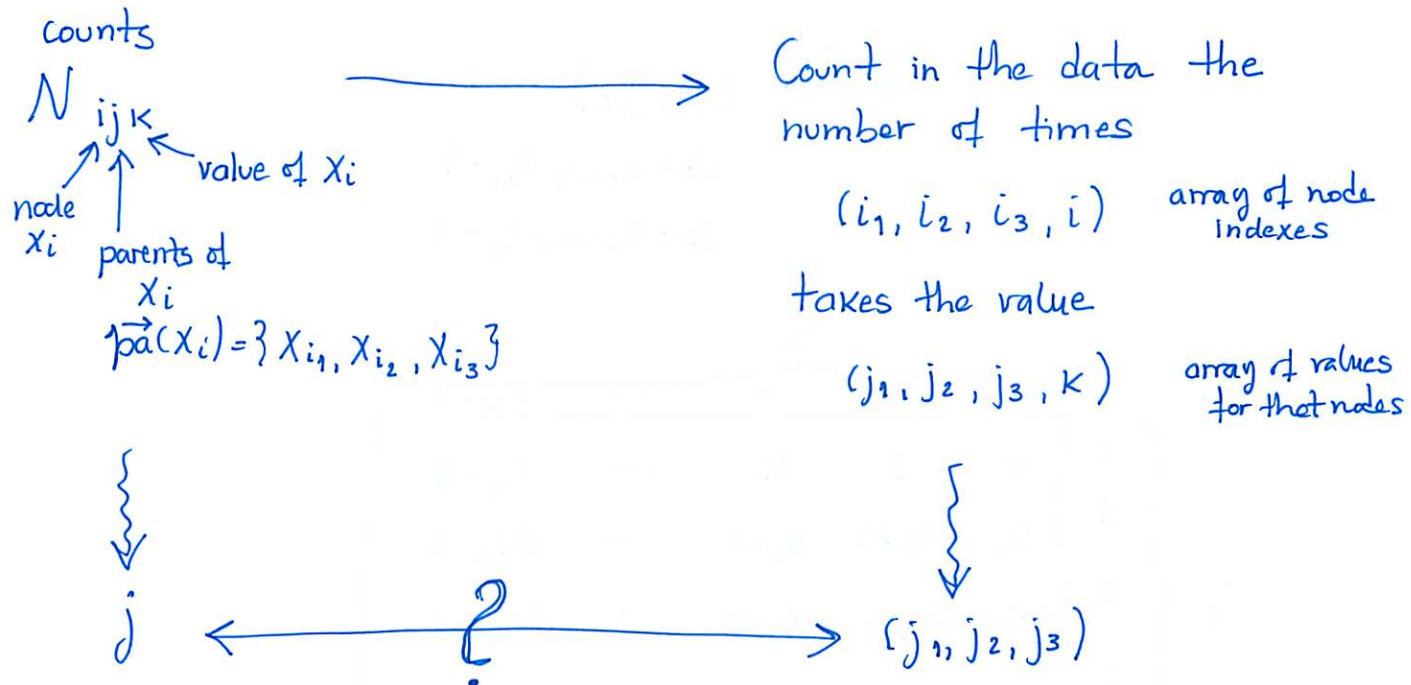 counts
N ijk
value of Xi
node
Xi
parents of
Xi
pa(Xi)={Xi1, Xi2, Xi3}
Count in the data the
number of times
(i1, i2, i3, i) array of node
indexes
takes the value
(j1, j2, j3, k) array of values
for that nodes
j ? (j1, j2, j3)